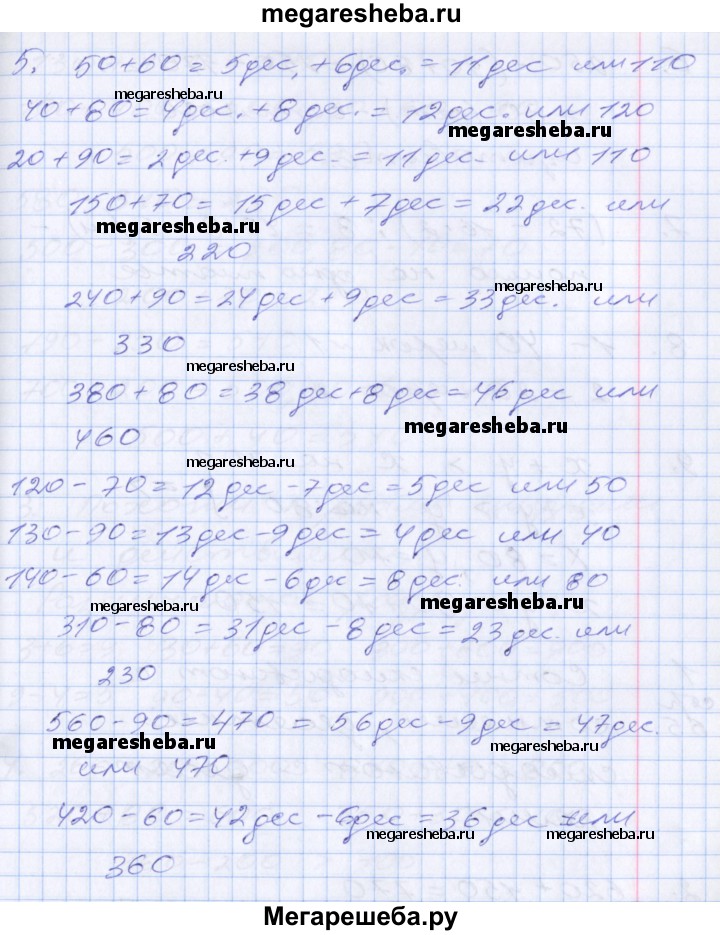 megaresheba.ru
5. 50+60= 5дес. +6дес. = 11дес или 110
megaresheba.ru
40+80=4дес. +8дес. = 12дес. или 120
megaresheba.ru
20+90= 2дес. +9дес. = 11дес. или 110
150+70= 15дес + 7дес = 22дес. или
megaresheba.ru
220
megaresheba.ru
240+90=24дес + 9дес = 33дес. или
330
megaresheba.ru
380+80=38дес+8дес=46дес или
megaresheba.ru
460
megaresheba.ru
120-70=12дес-7дес=5дес или 50
130-90=13дес-9дес=4дес или 40
140-60=14дес-6дес=8дес. или 80
megaresheba.ru megaresheba.ru
310-80=31дес-8дес=23дес. или
230
560-90=470=56дес-9дес=47дес.
megaresheba.ru megaresheba.ru
или 470
420-60=42дес-6дес=36дес или
megaresheba.ru megaresheba.ru
360
Мегарешеба.ру